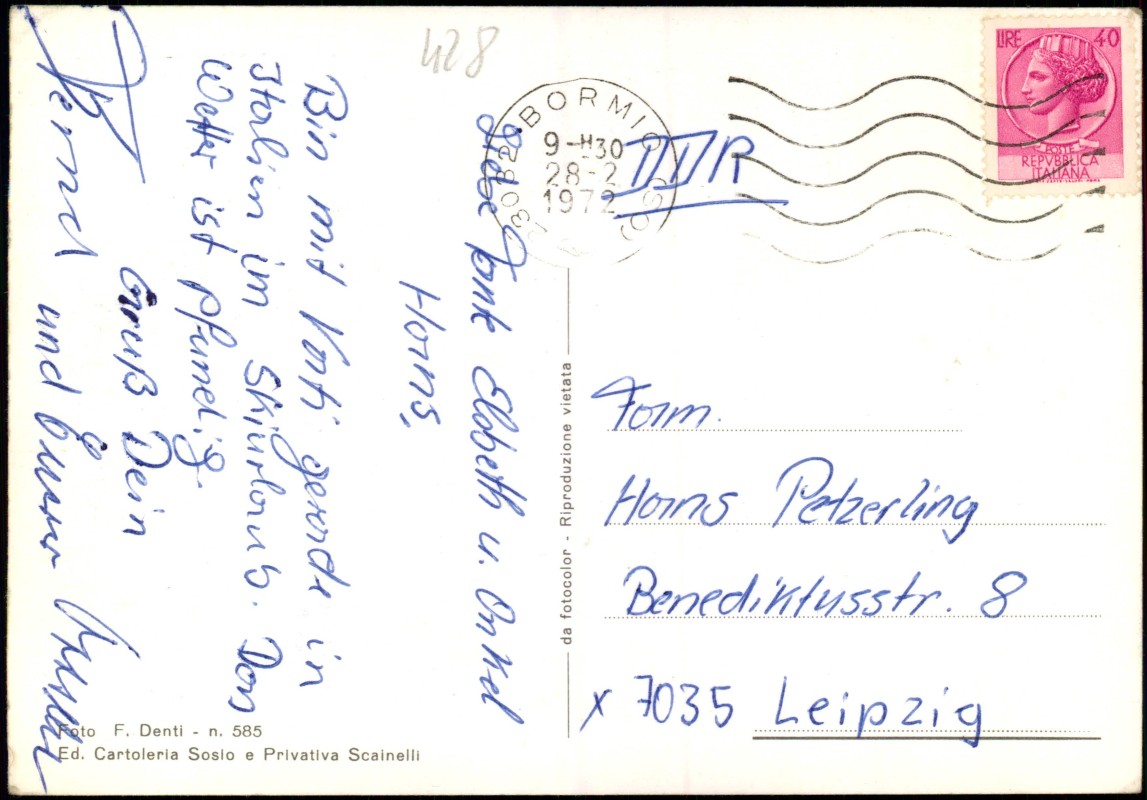 428
LIRE 40
POSTE
REPVBBLICA
ITALIANA
23032 BORMIO (SO)
9-H30
28-2
1972
DDR
Liebe Tante Elsbeth u. Onkel
Hans,
Bin mit Vati gerade in
Italien im Skiurlaub. Das
Wetter ist pfundig.
Gruß Dein
Bernd und
da fotocolor - Riproduzione vietata
Fam.
Hans Petzerling
Benediktusstr. 8
x 7035 Leipzig
Foto F. Denti - n. 585
Ed. Cartoleria Sosio e Privativa Scainelli